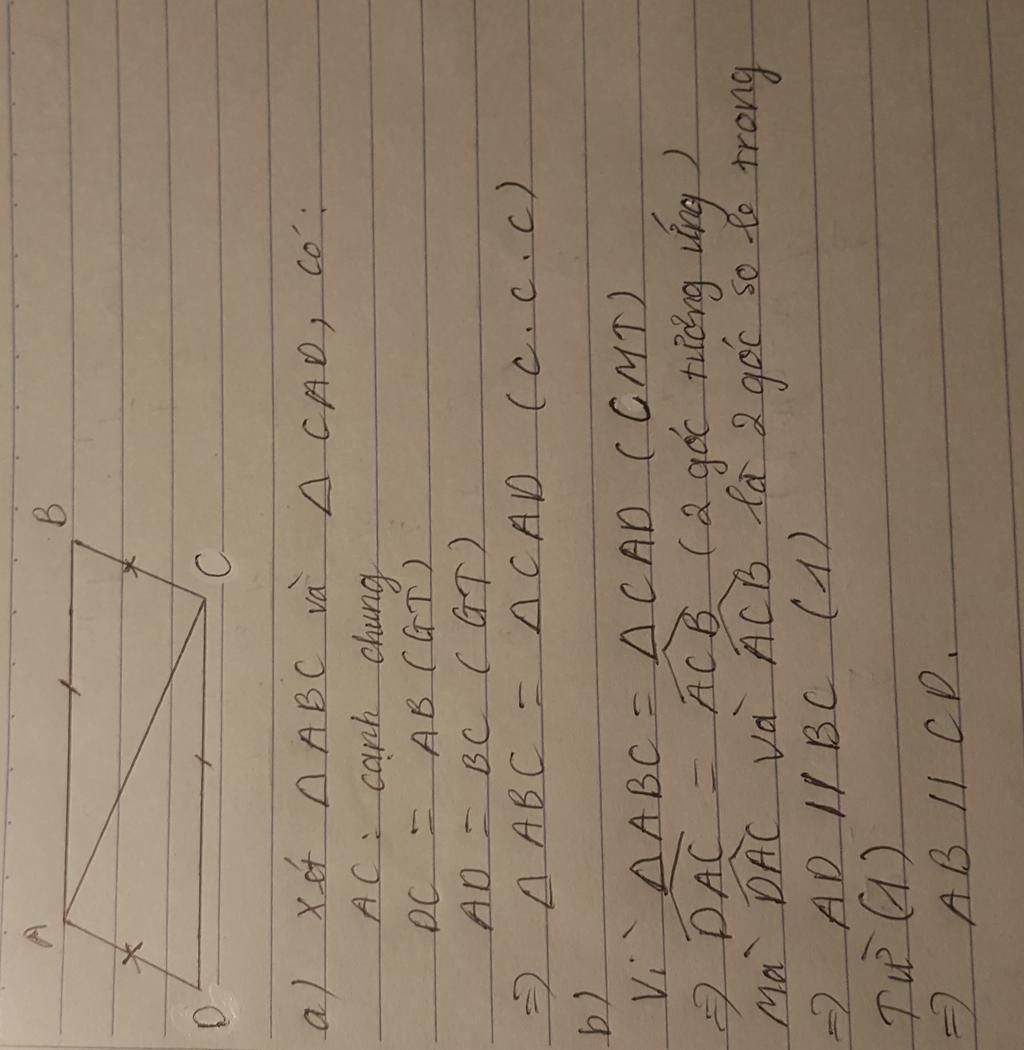 A
B
D
C
a) Xét ΔABC và ΔCAD, có:
AC: cạnh chung
DC = AB (GT)
AD = BC (GT)
=) ΔABC = ΔCAD (C.C.C)
b)
Vì ΔABC = ΔCAD (CMT)
=) \widehat{DAC} = \widehat{ACB} (2 góc tương ứng)
Mà \widehat{DAC} và \widehat{ACB} là 2 góc so le trong
=) AD // BC (1)
Từ (1)
=) AB // CD.